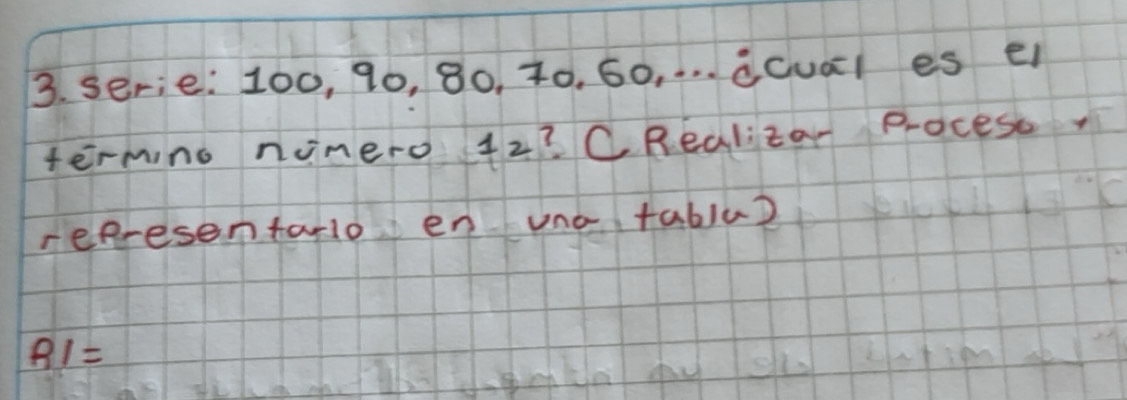 3. serie: 100, 90, 80, 70, 60,... ¿cuál es el
término número 12? (Realizar Proceso y
representarlo en una tabla)
R/=